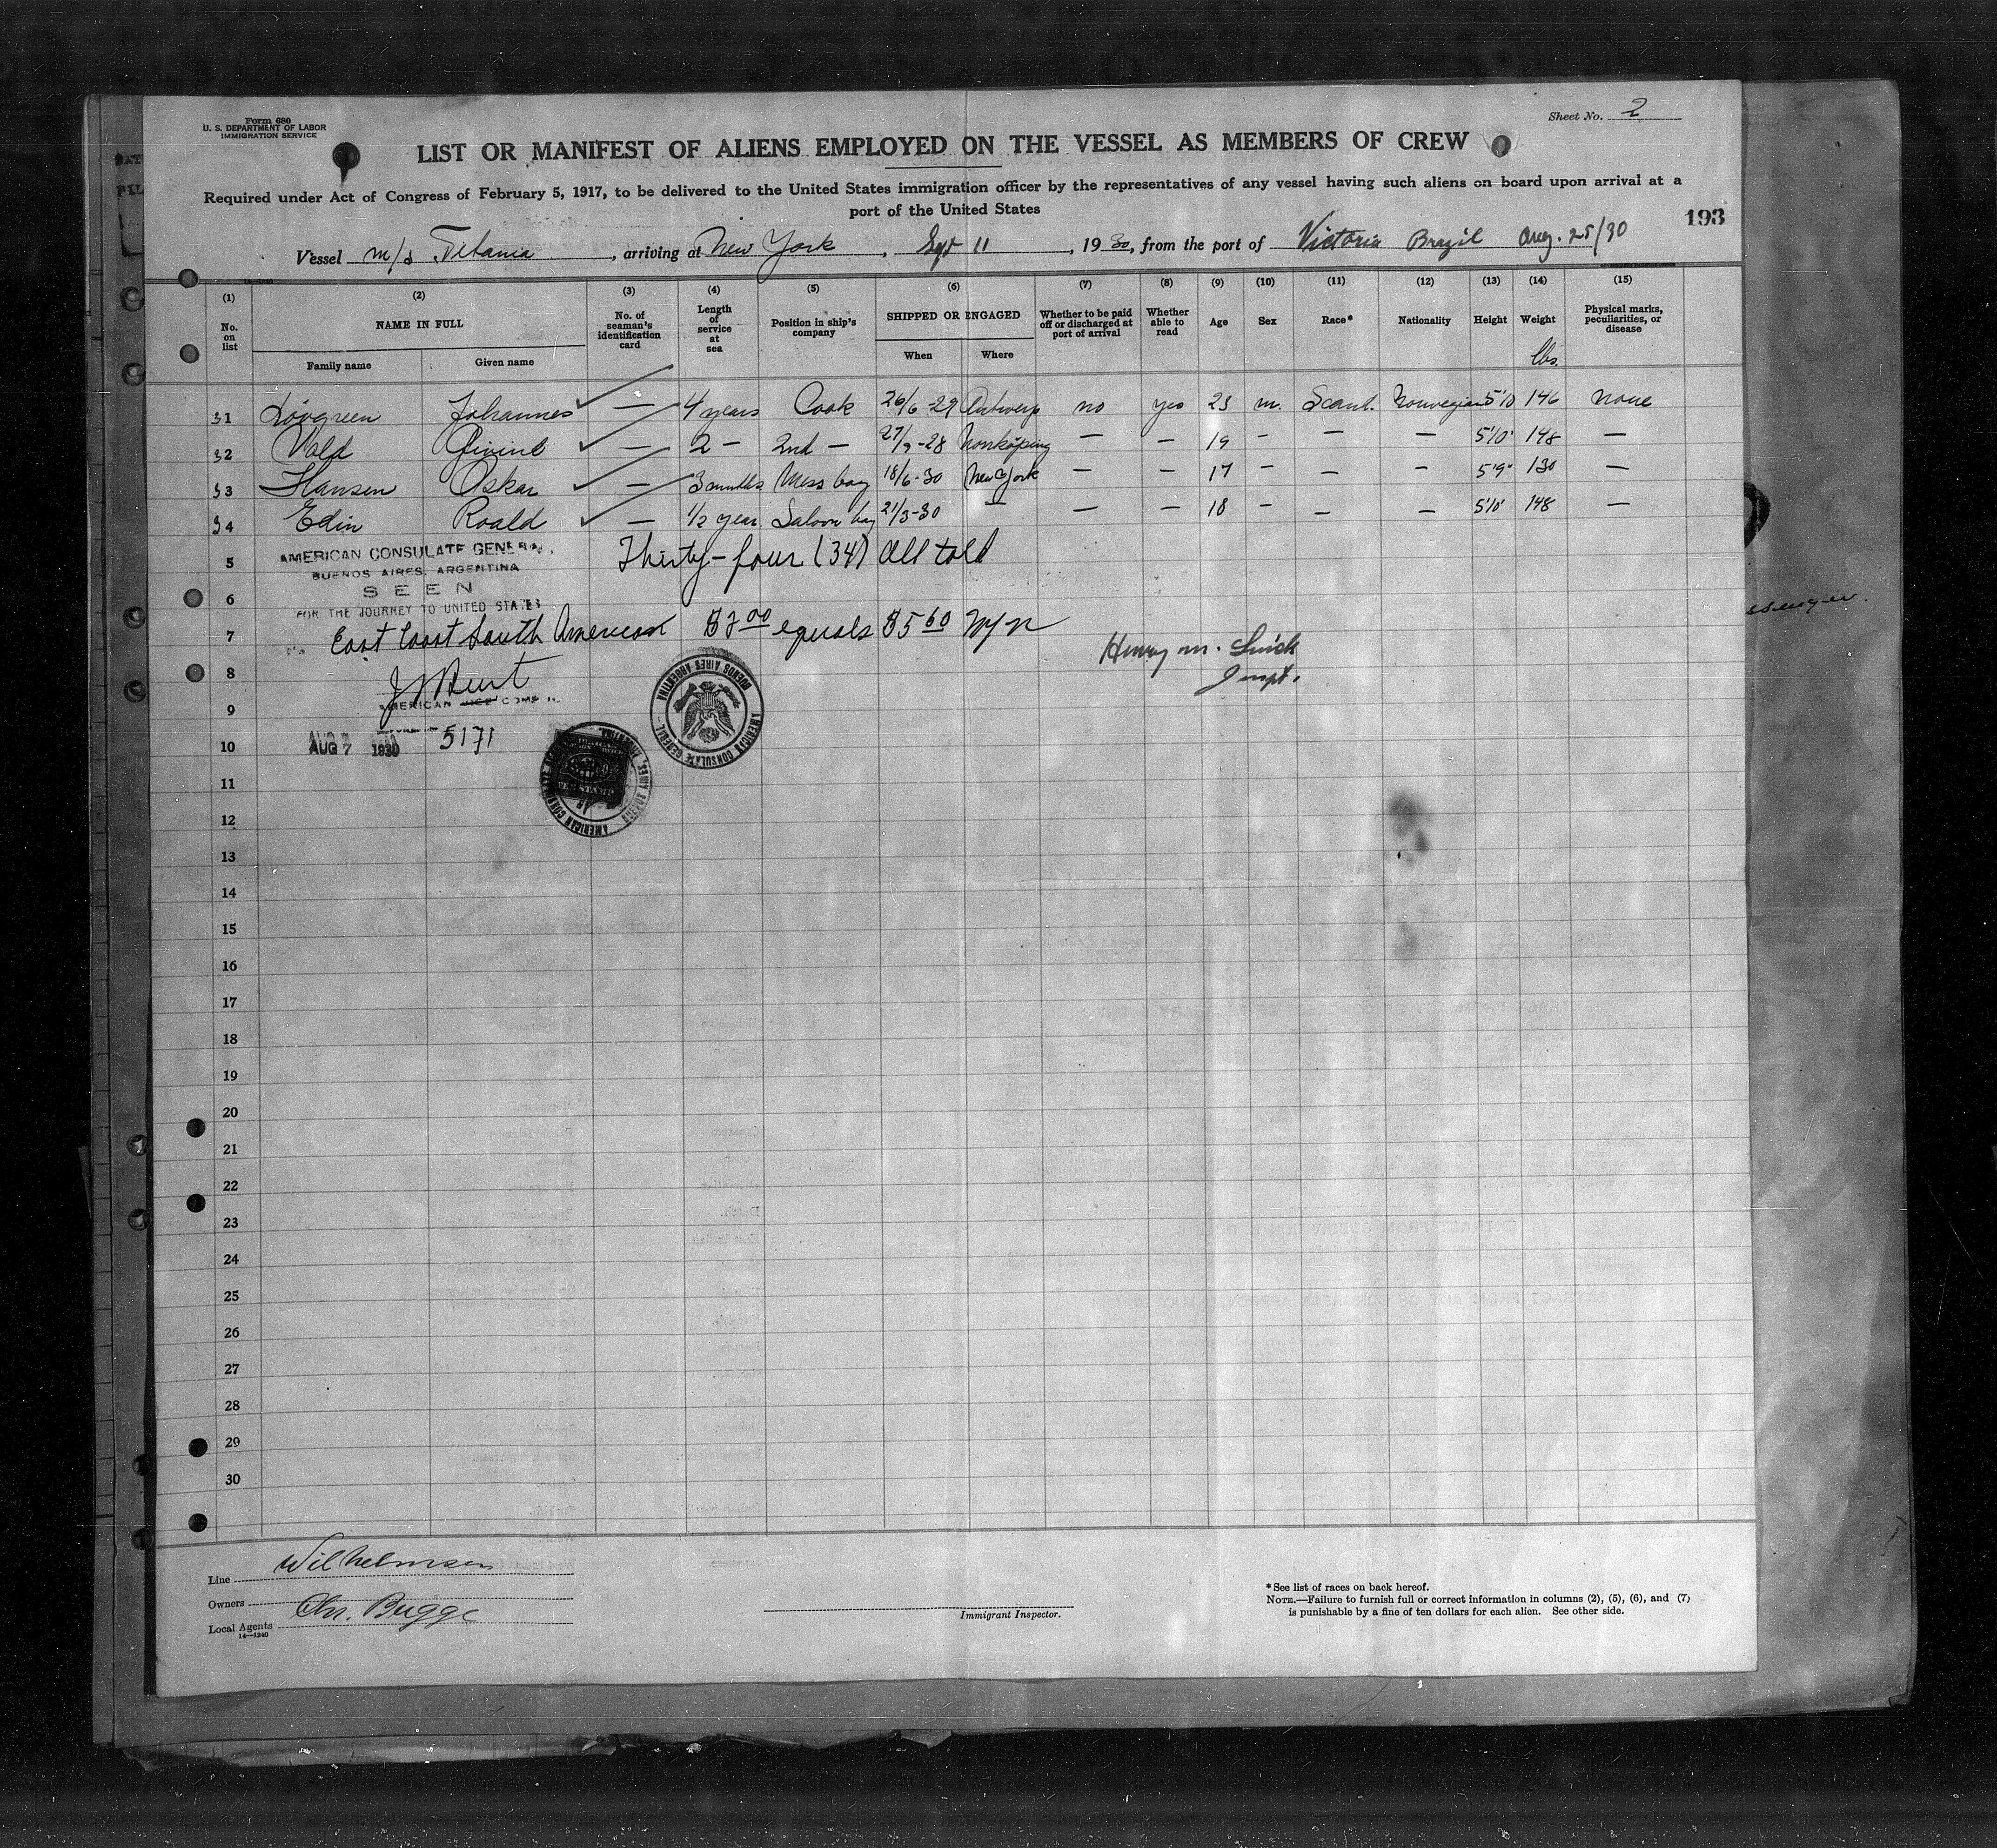 Form 680
U. S. DEPARTMENT OF LABOR
IMMIGRATION SERVICE
Sheet No. 2
LIST OR MANIFEST OF ALIENS EMPLOYED ON THE VESSEL AS MEMBERS OF CREW
Required under Act of Congress of February 5, 1917, to be delivered to the United States immigration officer by the representatives of any vessel having such aliens on board upon arrival at a
port of the United States
193
Vessel m/s Titania, arriving at New York, Sept 11, 1930, from the port of Victoria Brazil Aug. 25/30
(1) (2) (3) (4) (5) (6) (7) (8) (9) (10) (11) (12) (13) (14) (15)
No. on list NAME IN FULL No. of seaman's identification card Length of service at sea Position in ship's company SHIPPED OR ENGAGED Whether to be paid off or discharged at port of arrival Whether able to read Age Sex Race* Nationality Height Weight Physical marks, peculiarities, or disease
Family name Given name When Where lbs.
31 Lövgreen Johannes — 4 years Cook 26/6-29 Antwerp no yes 23 m. Scand. Norwegian 5'10 146 none
32 Vold — 2 — 2nd — 27/9-28 Norrköping — — 19 — — — 5'10" 148 —
33 Hansen Oskar — 3 months Mess boy 18/6-30 New York — — 17 — — — 5'9" 130 —
34 Edin Roald — 1/2 year Saloon boy 21/3-30 — — — 18 — — — 5'10" 148 —
AMERICAN CONSULATE GENERAL,
BUENOS AIRES, ARGENTINA
SEEN
FOR THE JOURNEY TO UNITED STATES
5 Thirty-four (34) all told
6
7 East Coast South American $2.00 equals $5.60 m/n
Henry M.
Inspt.
8
AMERICAN VICE CONSUL
9
10 AUG 7 1930 5171
AMERICAN CONSULATE GENERAL
BUENOS AIRES ARGENTINA
11
12
13
14
15
16
17
18
19
20
21
22
23
24
25
26
27
28
29
30
Line Wilhelmsen
Owners
Local Agents Chr. Bugge
14—1240
Immigrant Inspector.
* See list of races on back hereof.
NOTE.—Failure to furnish full or correct information in columns (2), (5), (6), and (7)
is punishable by a fine of ten dollars for each alien. See other side.